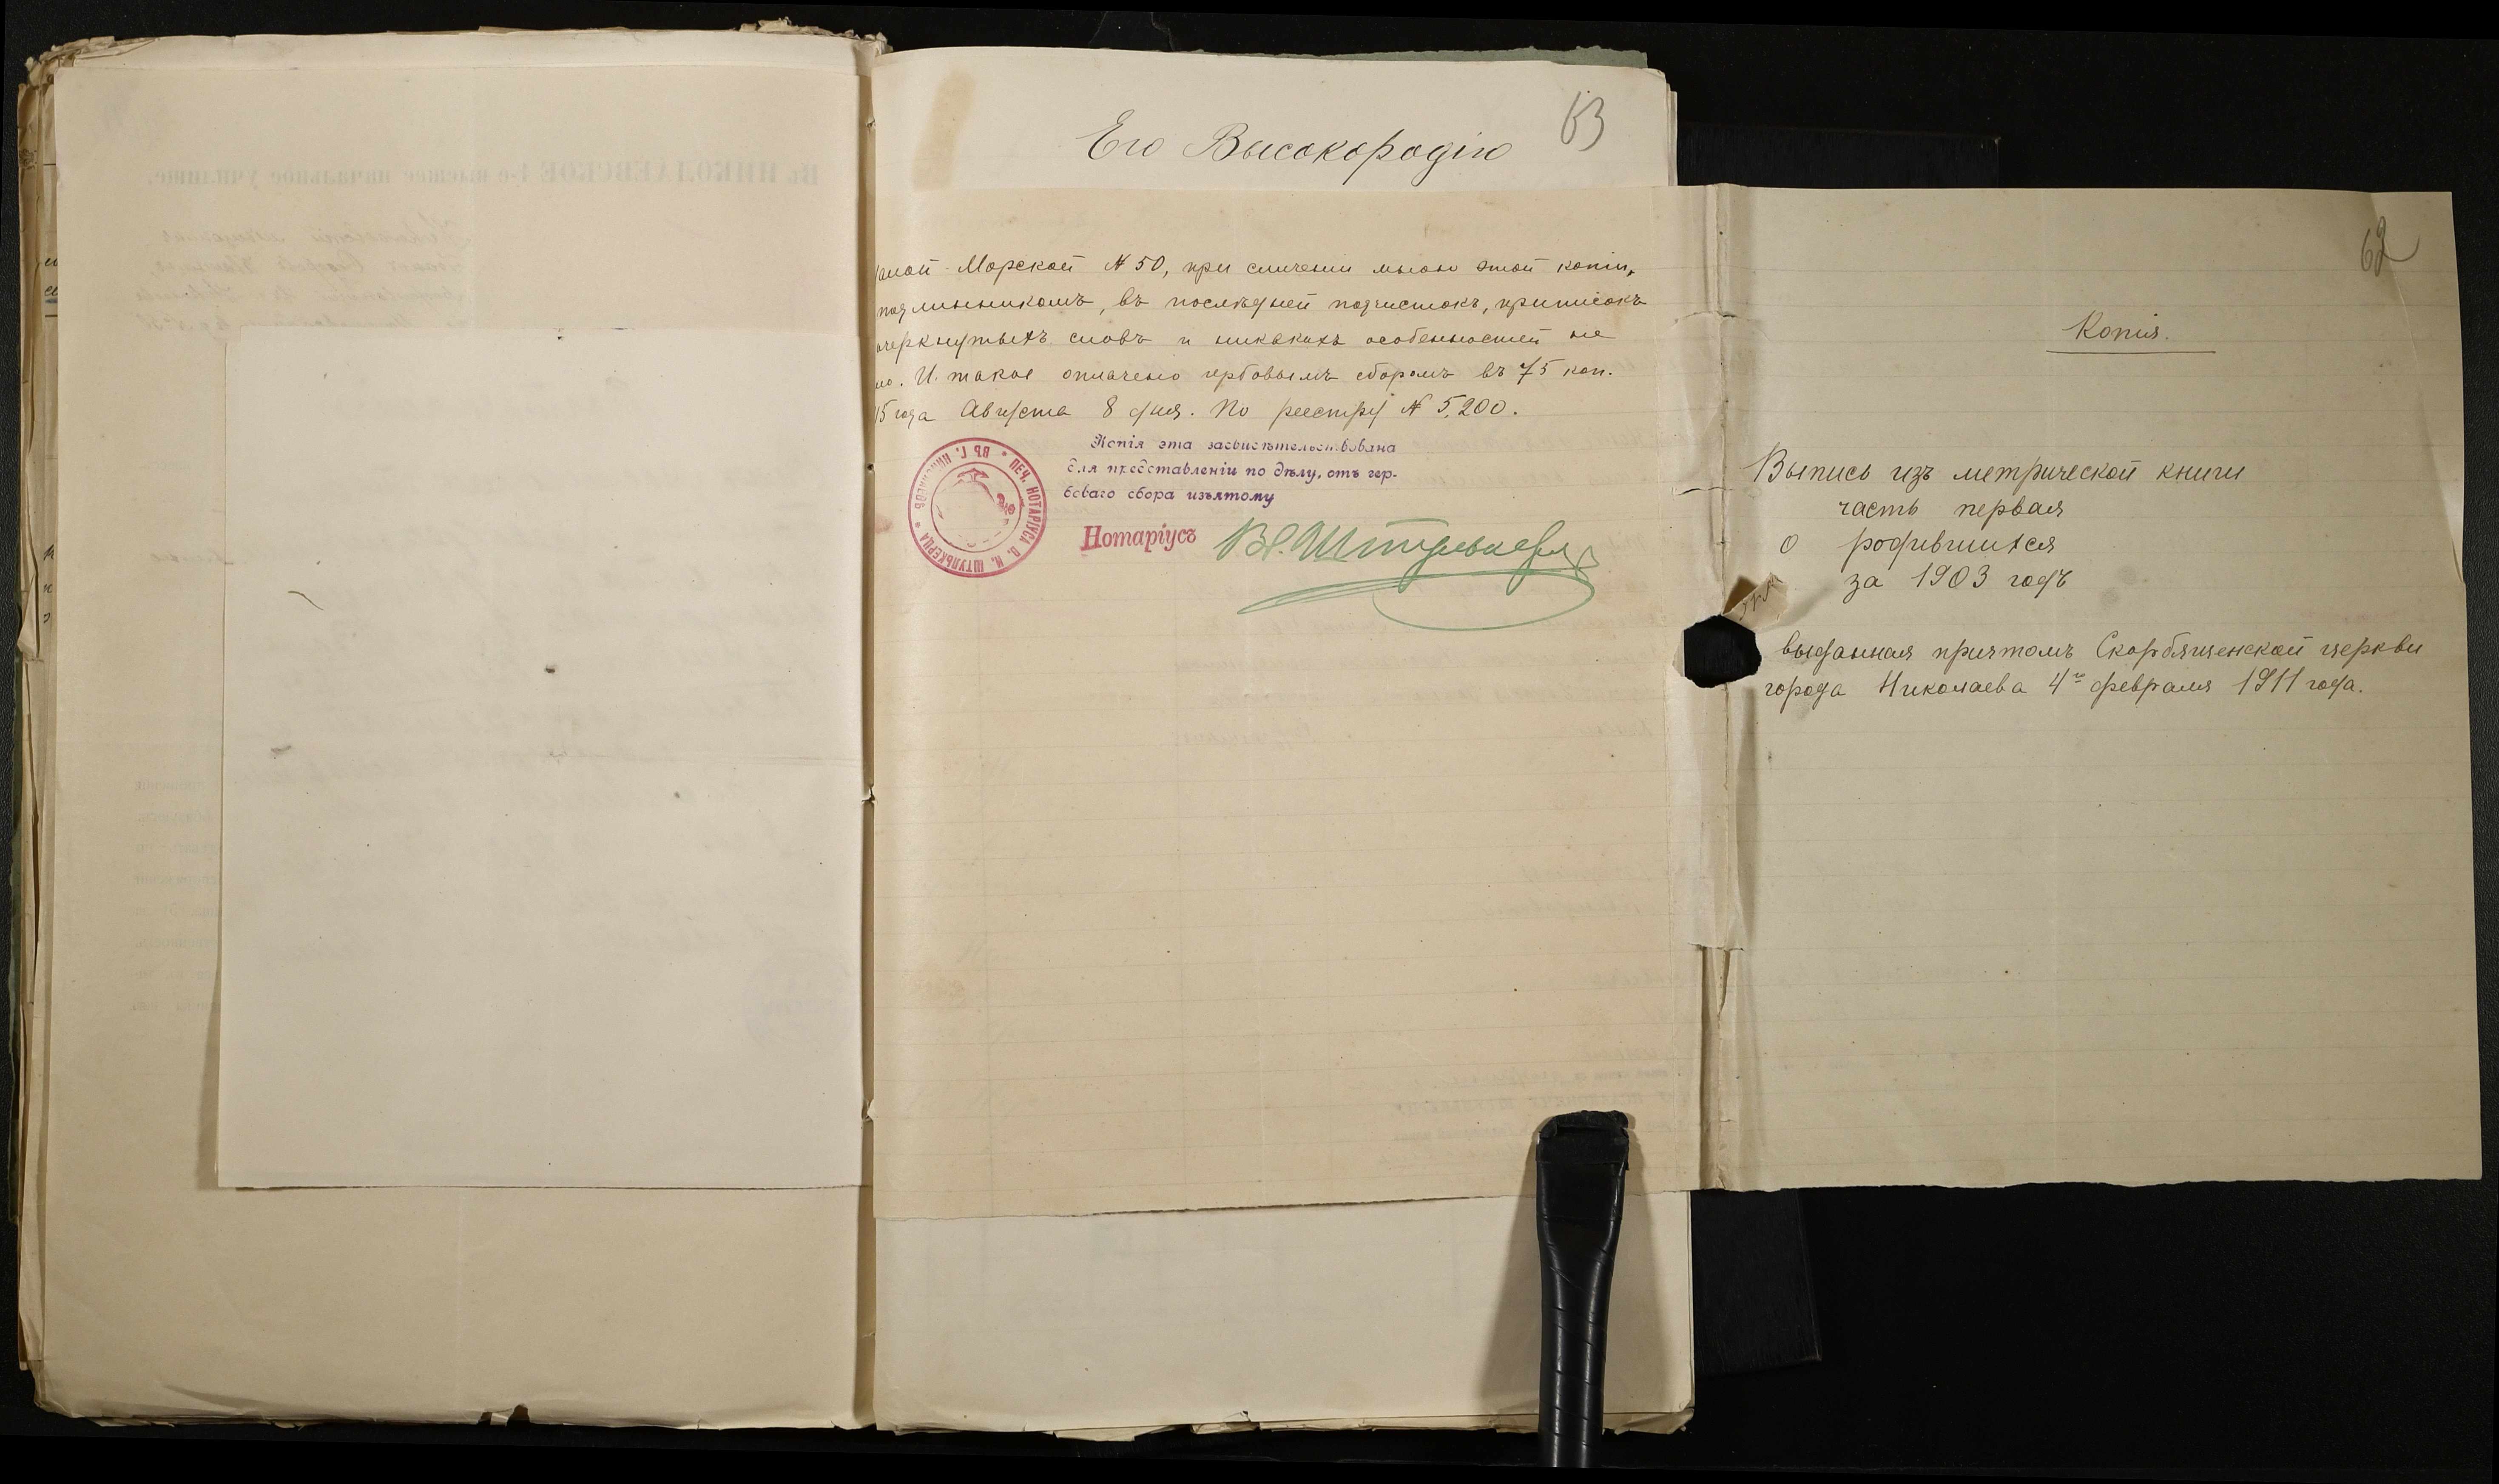 63
Его Высокородію
Морской № 50, при сличеніи мною этой копіи,
подлинникомъ, въ послѣдней подчистокъ, приписокъ
черкнутыхъ словъ и никакихъ особенностей не
но. И. такое оплачено гербовымъ сборомъ въ 75 коп.
15 года Августа 8 дня. По реестру № 5,200.
Копія эта засвидѣтельствована
для представленіи по дѣлу, отъ гер-
боваго сбора изъятому
ПЕЧ. НОТАРІУСА В. И. ШТУЛЬКЕРЦА * ВЪ Г. НИКОЛАЕВѢ *
Нотаріусъ Вл. Штулькерц
62
Копія.
Выпись изъ метрической книги
часть первая
о родившихся
за 1903 годъ
выданная причтомъ Скорбященской церкви
города Николаева 4го февраля 1911 года.
Въ НИКОЛАЕВСКОЕ 1-е высшее начальное училище.